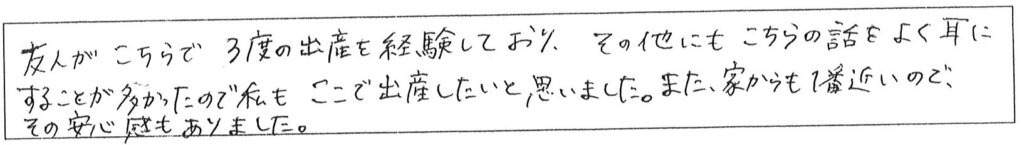 友人がこちらで3度の出産を経験しており、その他にもこちらの話をよく耳に
することが多かったので私もここで出産したいと思いました。また、家からも1番近いので、
その安心感もありました。